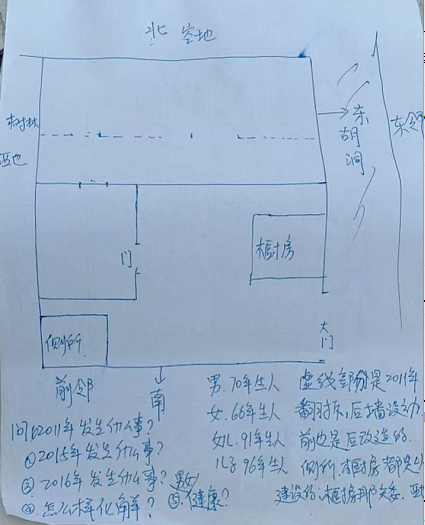 北 空地
东邻
树林
西边
东胡洞
门
橱房
大门
侧所
前邻
南
问①2011年发生什么事?
②2015年发生什么事?
③2016年发生什么事?
④怎么样化解?
⑤健康?
男.70年生人
女.66年生人
女儿.91年生人
儿子96年生人
虚线部份是2011年
翻拆,后墙没动
前也是后改造的.
侧所,橱房都是